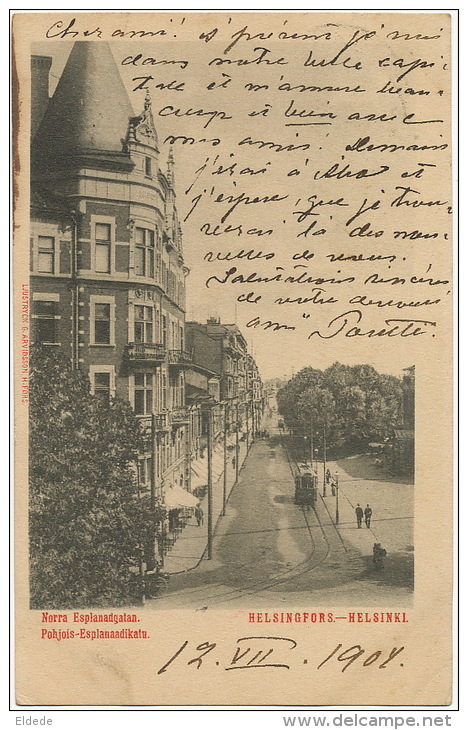 Cher ami! A présent je suis
dans notre belle capi-
tale et m'amuse beau-
coup et bien avec
mes amis. Demain
j'irai à Åbo et
j'espère, que je trou-
verai là des nou-
velles de vous.
Salutations sincères
de votre devoué
ami
LJUSTRYCK G. ARVIDSSON H:FORS
Norra Esplanadgatan.
Pohjois-Esplanaadikatu.
HELSINGFORS.—HELSINKI.
12. VII. 1904.
Eldede
www.delcampe.net